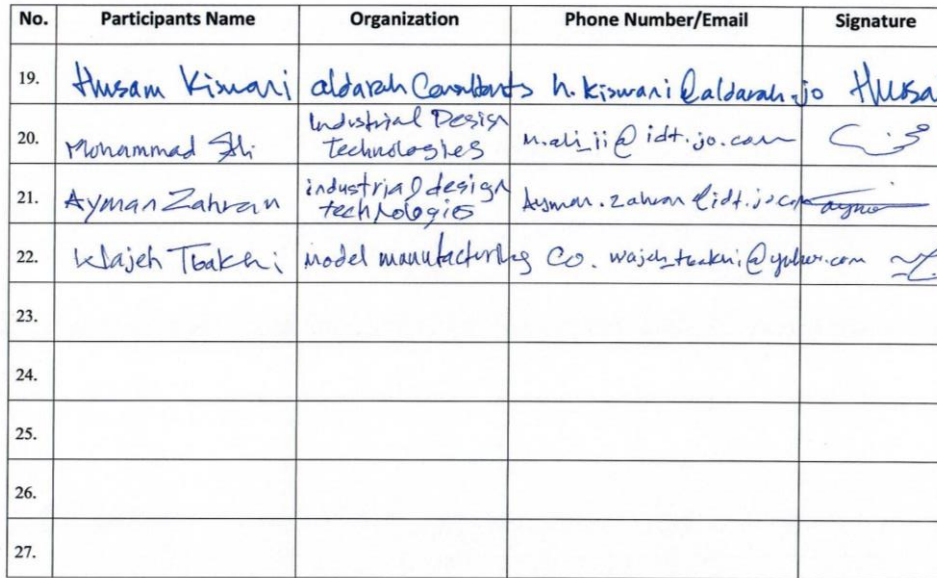 No. Participants Name Organization Phone Number/Email Signature
19. Husam Kiswani aldarah Consultants h.kiswani@aldarah.jo Husa
20. Mohammad Ali Industrial Design Technologies m.ali_ii@idt.jo.com
21. Ayman Zahran industrial design technologies Ayman.zahran@idt.jo.com
22. Wajeh Tbakhi model manufacturing Co.
23.
24.
25.
26.
27.